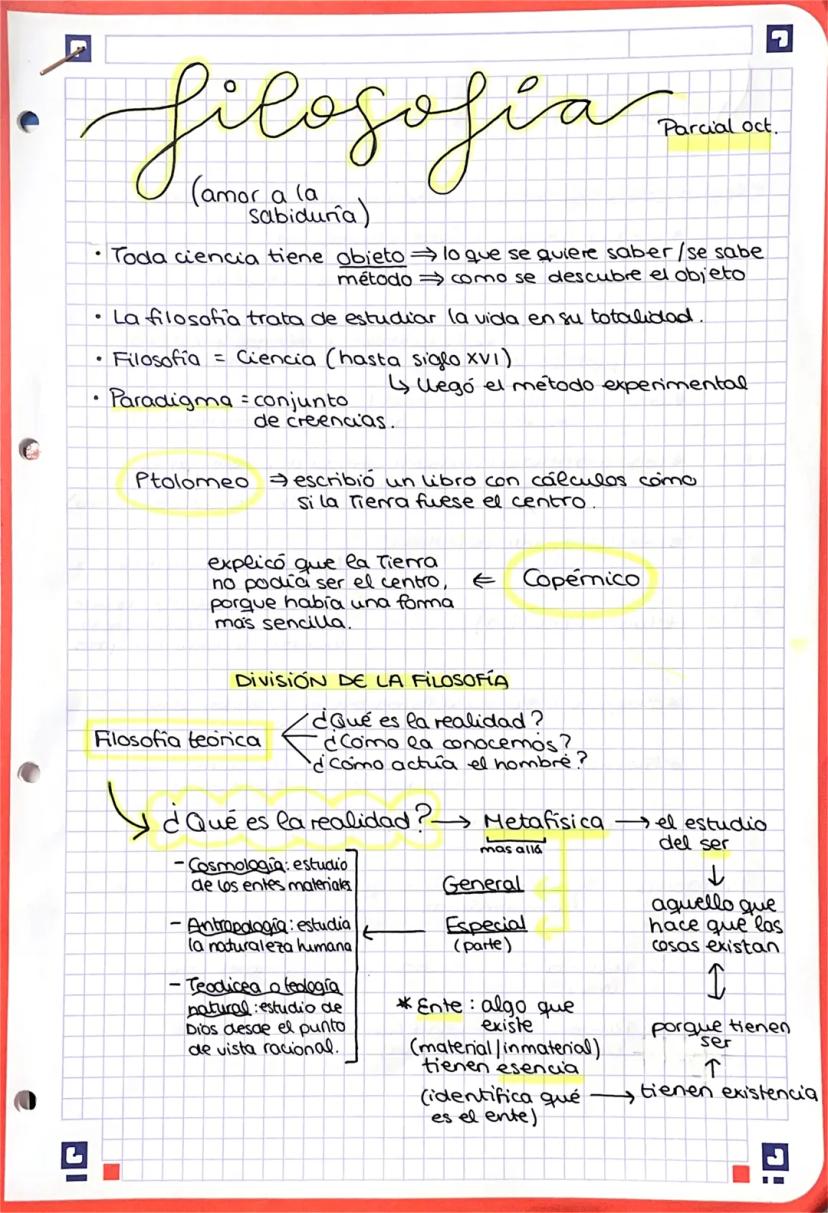 filosofía
Parcial oct.
(amor a la
sabiduría)
· Toda ciencia tiene objeto ⇒ lo que se quiere saber/se sabe
método ⇒ como se descubre el objeto
· La filosofía trata de estudiar la vida en su totalidad.
· Filosofía = Ciencia (hasta siglo XVI)
↳ llegó el método experimental
· Paradigma = conjunto
de creencias.
Ptolomeo ⇒ escribió un libro con cálculos como
si la Tierra fuese el centro.
explicó que la Tierra
no podía ser el centro, ⇐ Copérnico
porque había una forma
más sencilla.
DIVISIÓN DE LA FILOSOFÍA
Filosofía teórica
¿Qué es la realidad?
¿Cómo la conocemos?
¿Cómo actúa el hombre?
¿Qué es la realidad? → Metafísica → el estudio
del ser
más allá
↓
aquello que
hace que las
cosas existan
↕
porque tienen
ser
↑
General
Especial
(parte)
←
- Cosmología: estudio
de los entes materiales
- Antropología: estudia
la naturaleza humana
- Teodicea o teología
natural: estudio de
Dios desde el punto
de vista racional.
* Ente: algo que
existe
(material/inmaterial)
tienen esencia
(identifica qué → tienen existencia
es el ente)